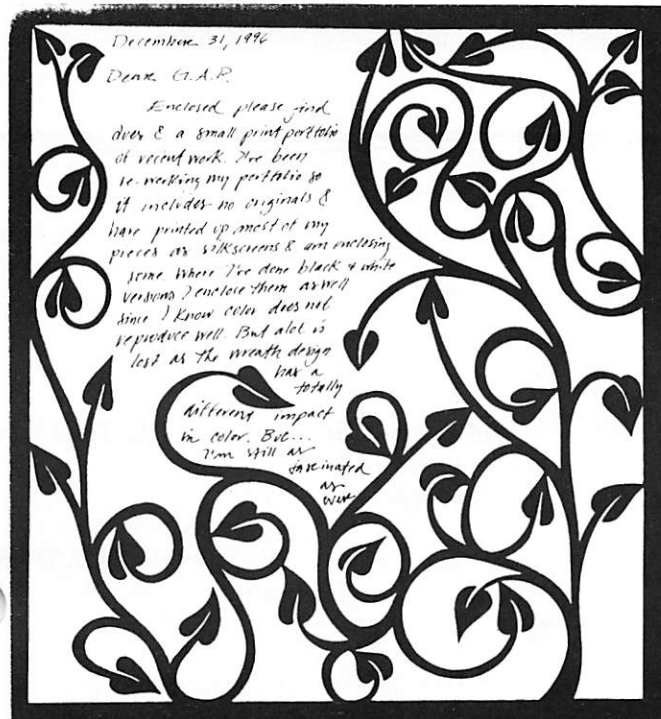 December 31, 1996
Dear G.A.P.
Enclosed please find
dues & a small print portfolio
of recent work. I've been
re-working my portfolio so
it includes no originals &
have printed up most of my
pieces as silkscreens & am enclosing
some where I've done black & white
versions I enclose them as well
since I know color does not
reproduce well. But alot is
lost as the wreath design
has a
totally
different impact
in color. But...
I'm still as
fascinated
as
ever